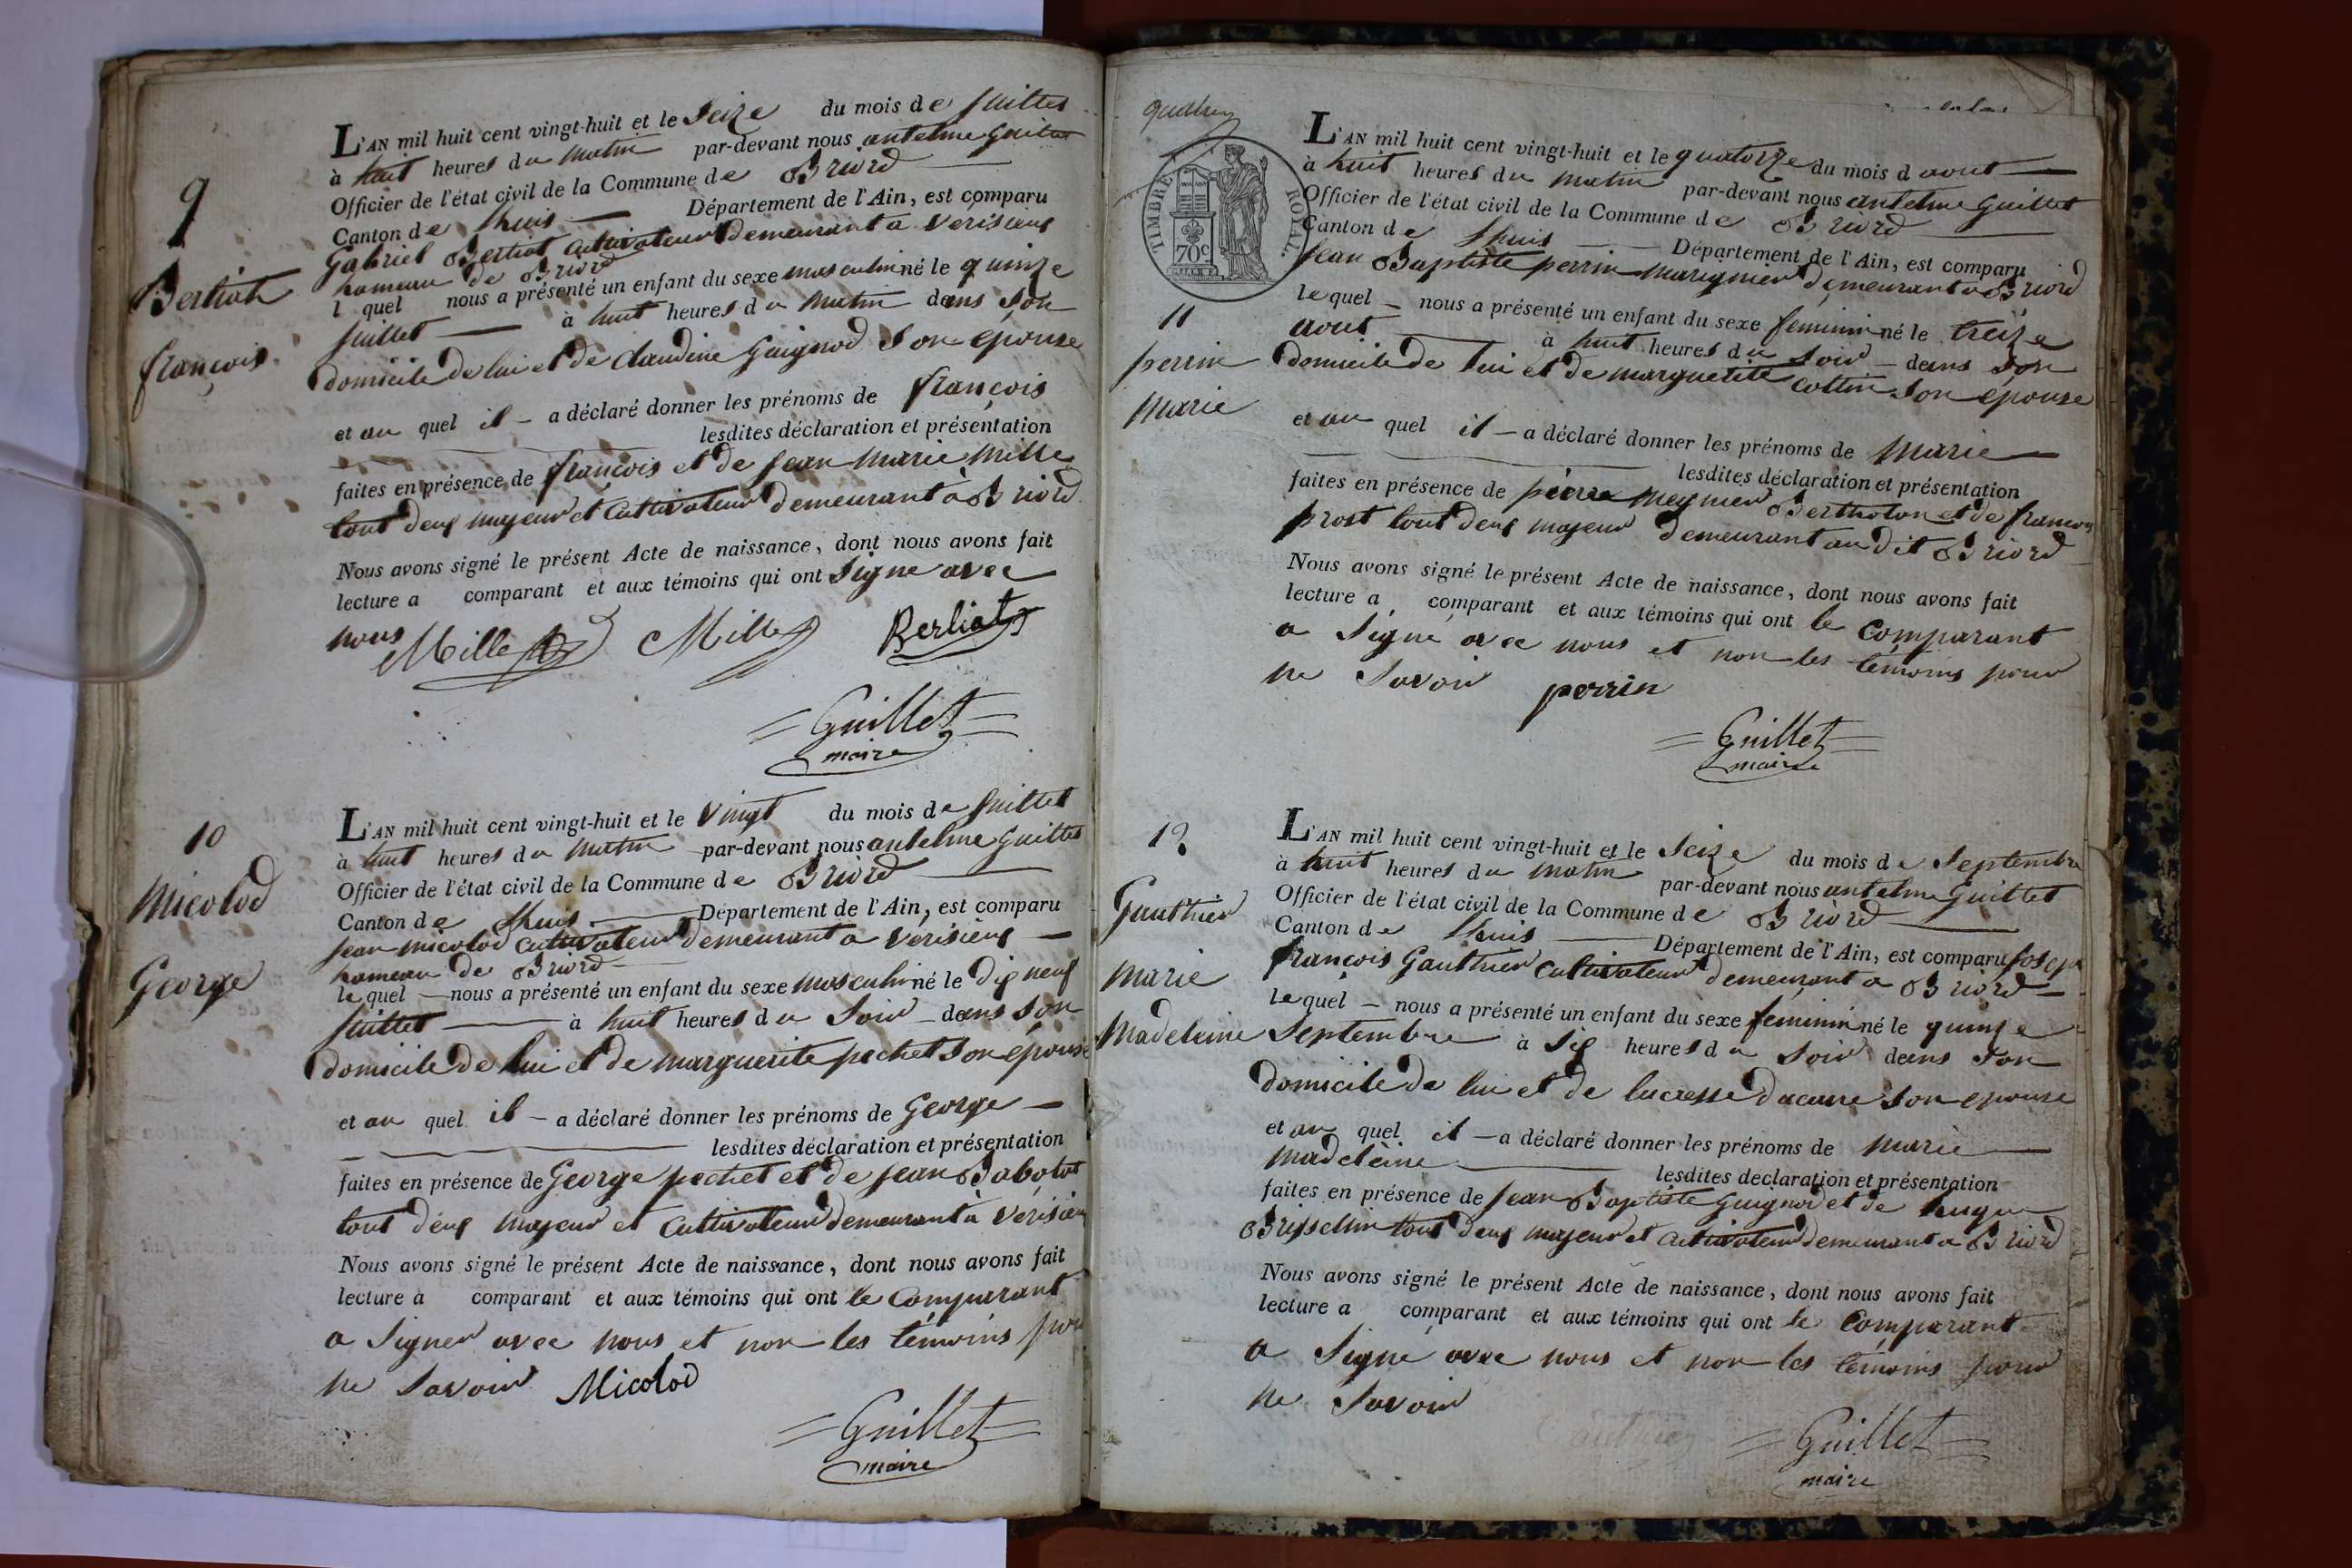 9
Berliat
françois
L'AN mil huit cent vingt-huit et le Seize du mois de juillet
à huit heures du matin par-devant nous antelme Guillet
Officier de l'état civil de la Commune de Briord
Canton de Lhuis Département de l'Ain, est comparu
Gabriel Berliat cultivateur demeurant a Verisieux
hameau de Briord
l quel nous a présenté un enfant du sexe masculin né le quinze
juillet à huit heures du matin dans son
domicile de lui et de claudine Guignod son épouse
et au quel il a déclaré donner les prénoms de françois
lesdites déclaration et présentation
faites en présence de françois et de jean marie Mille
tout deux majeur et cultivateur demeurant à Briord
Nous avons signé le présent Acte de naissance, dont nous avons fait
lecture a comparant et aux témoins qui ont signe avec
nous Mille Mille Berliat
Guillet
maire
10
Micolod
George
L'AN mil huit cent vingt-huit et le vingt du mois de juillet
à huit heures du matin par-devant nous antelme Guillet
Officier de l'état civil de la Commune de Briord
Canton de Lhuis Département de l'Ain, est comparu
jean micolod cultivateur demeurant a verisieux
hameau de Briord
le quel nous a présenté un enfant du sexe masculin né le dix neuf
juillet à huit heures du soir dans son
domicile de lui et de marguerite pochet son épouse
et au quel il a déclaré donner les prénoms de George
lesdites déclaration et présentation
faites en présence de George pochet et de jean Babolat
tout deux majeur et cultivateur demeurant à verisieu
Nous avons signé le présent Acte de naissance, dont nous avons fait
lecture a comparant et aux témoins qui ont le comparant
a signer avec nous et non les témoins pour
ne savoir Micolod
Guillet
maire
TIMBRE ROYAL
70c
11
perrin
Marie
L'AN mil huit cent vingt-huit et le quatorze du mois d aout
à huit heures du matin par-devant nous antelme Guillet
Officier de l'état civil de la Commune de Briord
Canton de Lhuis Département de l'Ain, est comparu
jean Baptiste perrin marignier demeurant a Briord
le quel nous a présenté un enfant du sexe feminin né le treize
aout à huit heures du soir dans son
domicile de lui et de marguerite cottin son épouse
et au quel il a déclaré donner les prénoms de Marie
lesdites déclaration et présentation
faites en présence de pierre meynier Bertholon et de françois
prost tout deux majeur demeurant au dit Briord
Nous avons signé le présent Acte de naissance, dont nous avons fait
lecture a comparant et aux témoins qui ont le comparant
a signé avec nous et non les témoins pour
ne savoir perrin
Guillet
maire
12
Gauthier
marie
Madeleine
L'AN mil huit cent vingt-huit et le Seize du mois de septembre
à huit heures du matin par-devant nous antelme Guillet
Officier de l'état civil de la Commune de Briord
Canton de Lhuis Département de l'Ain, est comparu joseph
françois Gauthier cultivateur demeurant a Briord
le quel nous a présenté un enfant du sexe féminin né le quinze
Septembre à six heures du soir dans son
domicile de lui et de lucresse son épouse
et au quel il a déclaré donner les prénoms de marie
madeleine lesdites declaration et présentation
faites en présence de jean Baptiste Guignod et de hugue
tout deux majeur et cultivateur demeurant a Briord
Nous avons signé le présent Acte de naissance, dont nous avons fait
lecture a comparant et aux témoins qui ont le comparant
a signé avec nous et non les témoins pour
ne savoir
Guillet
maire